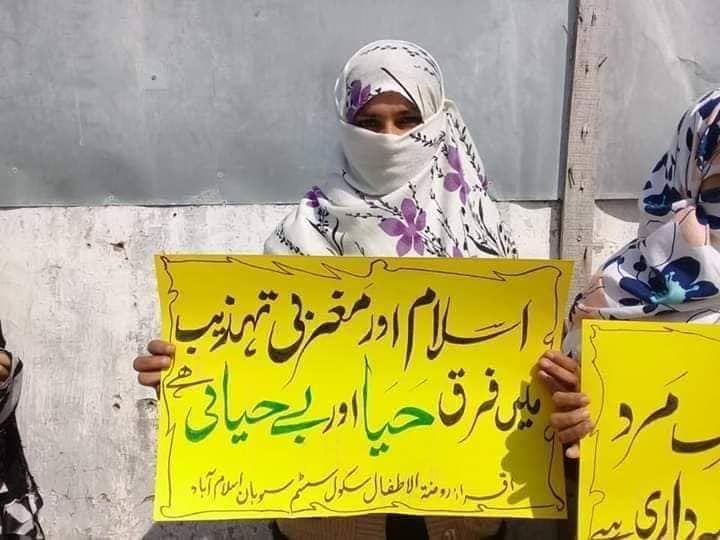 اسلام اور مغربی تہذیب
میں فرق حیا اور بے حیائی ھے
اقراء روضۃ الاطفال سکول سسٹم سوہان اسلام آباد
مرد
داری ہے